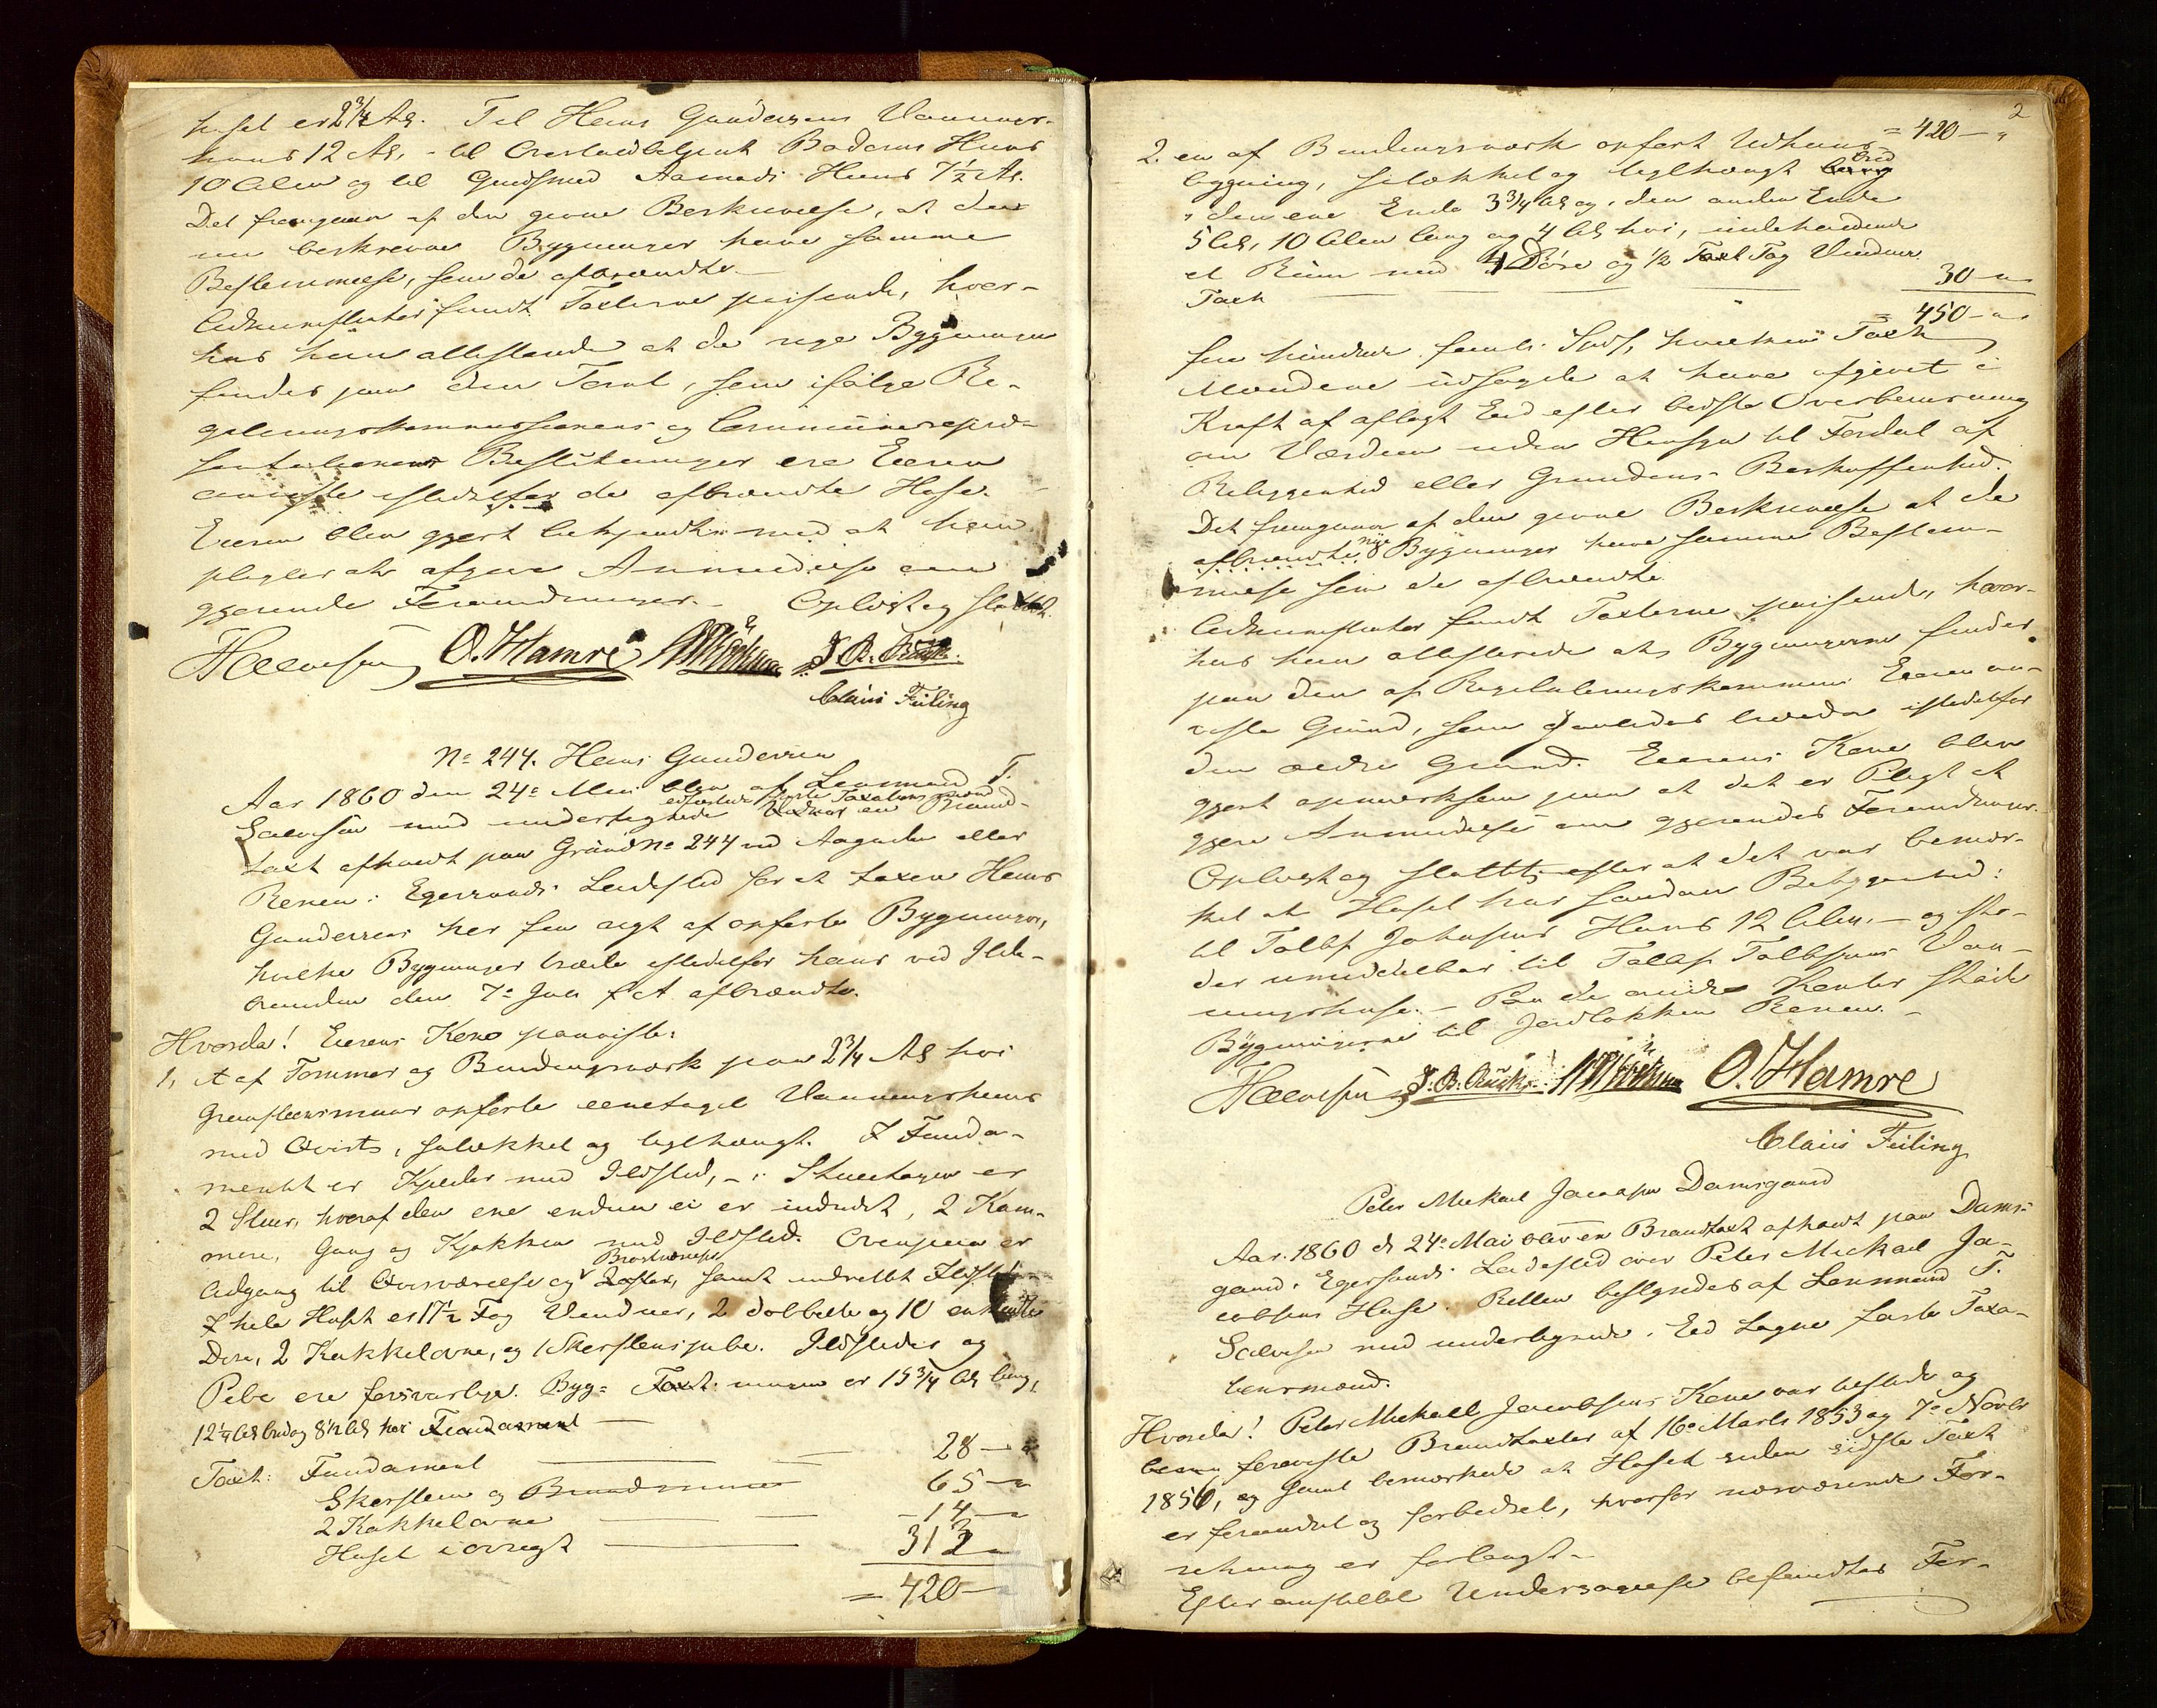 huset er 2¾ Al. Til Hans Gundersens Vaanings-
huus 12 Al, - til Bødkers Huus
10 Alen og til Guldsmed Aamodts Huus 7½ Al.
Det fremgaaer af den givne Beskrivelse, at de
nu beskrevne Bygninger have samme
Bestemmelse, som de afbrændte. —
Lensmanden fandt Taxterne passende, hvor-
hos han attesterede at de nye Bygninger
findes paa den Tomt, som ifølge Re-
guleringskommissionens og Communerepræ-
sentationens Beslutninger ere Eieren
anviste istedetfor de afbrændte Huse.
Eieren blev gjort bekjendt med at han
pligter at afgive Anmeldelse om
gjørende Forandringer. - Oplæst og sluttet.
Salvesen O. Hamre J. B.
Claus Feiling
No 244. Hans Gundersen
Aar 1860 den 24e Mai blev af Lensmand T.
Salvesen med undertegnede edfæstede faste Taxationsmænd en Brand-
taxt afholdt paa Grund No 244 ved Aagaden eller
Renen i Egersunds Ladested for at taxere Hans
Gundersens her fra nyt af opførte Bygninger,
hvilke Bygninger træde istedetfor hans ved Ilde-
branden den 7e Juli f. A. afbrændte.
Hvorda! Eierens Kone paaviste:
1, et af Tømmer og Bindingsværk paa 2¾ Al høi
Graasteensmuur opførte eenetages Vaaningshuus
med Qvist, panelet og teglhængt. I Funda-
mentet er Kjelder med Ildsted, - i Stueetagen er
2 Stuer, hvoraf den ene endnu ei er indredt, 2 Kam-
mere, Gang og Kjøkken med Ildsted. Ovenpaa er
Adgang til Qvistværelse og Brystværelse Lofter, samt indrettet Ildsted
I hele Huset er 17½ Fag Vinduer, 2 dobbelte og 10 enkelte
Døre, 2 Kakkelovne, og 1 Skorsteenspibe. Ildsteder og
Pibe ere forsvarlige. Byg= Taxt ningen er 15¾ Al lang,
12¼ Al bred og 8½ Al høi Fundament —
Taxt: Fundament — 28 — "
Skorsteen og Brandmuur 65 — "
2 Kakkelovne — 14 — "
Huset iøvrigt — 313 "
= 420 — "
2
= 420 — "
2. en af Bindingsværk opført Udhuus-
bygning, panelet og teglhængt bred
i den ene Ende 3¾ Al og i den anden Ende
5 Al, 10 Alen lang og 4 Al høi, indeholdende
et Rum med 4 Døre og ½ Fag Vinduer
Taxt — 30 — "
= 450 — "
fire hundrede femti Spd, hvilken Taxt
Mændene udsagde at have afgivet i
Kraft af aflagt Eed efter bedste Overbeviisning
om Værdien uden Hensyn til Fordeel af
Beliggenhed eller Grundens Beskaffenhed.
Det fremgaaer af den givne Beskrivelse at de
afbrændte nye Bygninger have samme Bestem-
melse som de afbrændte
Lensmanden fandt Taxterne passende, hvor-
hos han attesterede at Bygningerne findes
paa den af Reguleringskommis: Eieren an-
viste Grund, som saaledes træder istedetfor
den ældre Grund. Eierens Kone blev
gjort opmærksom paa at det er Pligt at
gjøre Anmeldelse om gjørendes Forandringer.
Oplæst og sluttet, efter at det var bemær-
ket at Huset har saadan Beliggenhed:
til Tollef Johnsens Huus 12 Alen, - og stø-
der umiddelbar til Tollef Tollefsens Vaa-
ningshuus. - Paa de andre Kanter støde
Bygningerne til Jordløkken Renen. -
Salvesen J. B. O. Hamre
Claus Feiling
Peter Mickal Jacobsen Damsgaard
Aar 1860 d 24e Mai blev en Brandtaxt afholdt paa Dams-
gaard i Egersunds Ladested over Peter Mickal Ja-
cobsens Huse. Retten bestyredes af Lensmand T.
Salvesen med undertegnede Eed Lagne faste Taxa-
tionsmænd.
Hvorda! Peter Mickall Jacobsens Kone var tilstede og
foreviste Brandtaxter af 16e Marts 1853 og 7e Novbr
1856, og samt bemærkede at Huset siden sidste Taxt
er forandret og forbedret, hvorfor nærværende For-
retning er forlangt. -
Efter anstillet Undersøgelse befandtes For-